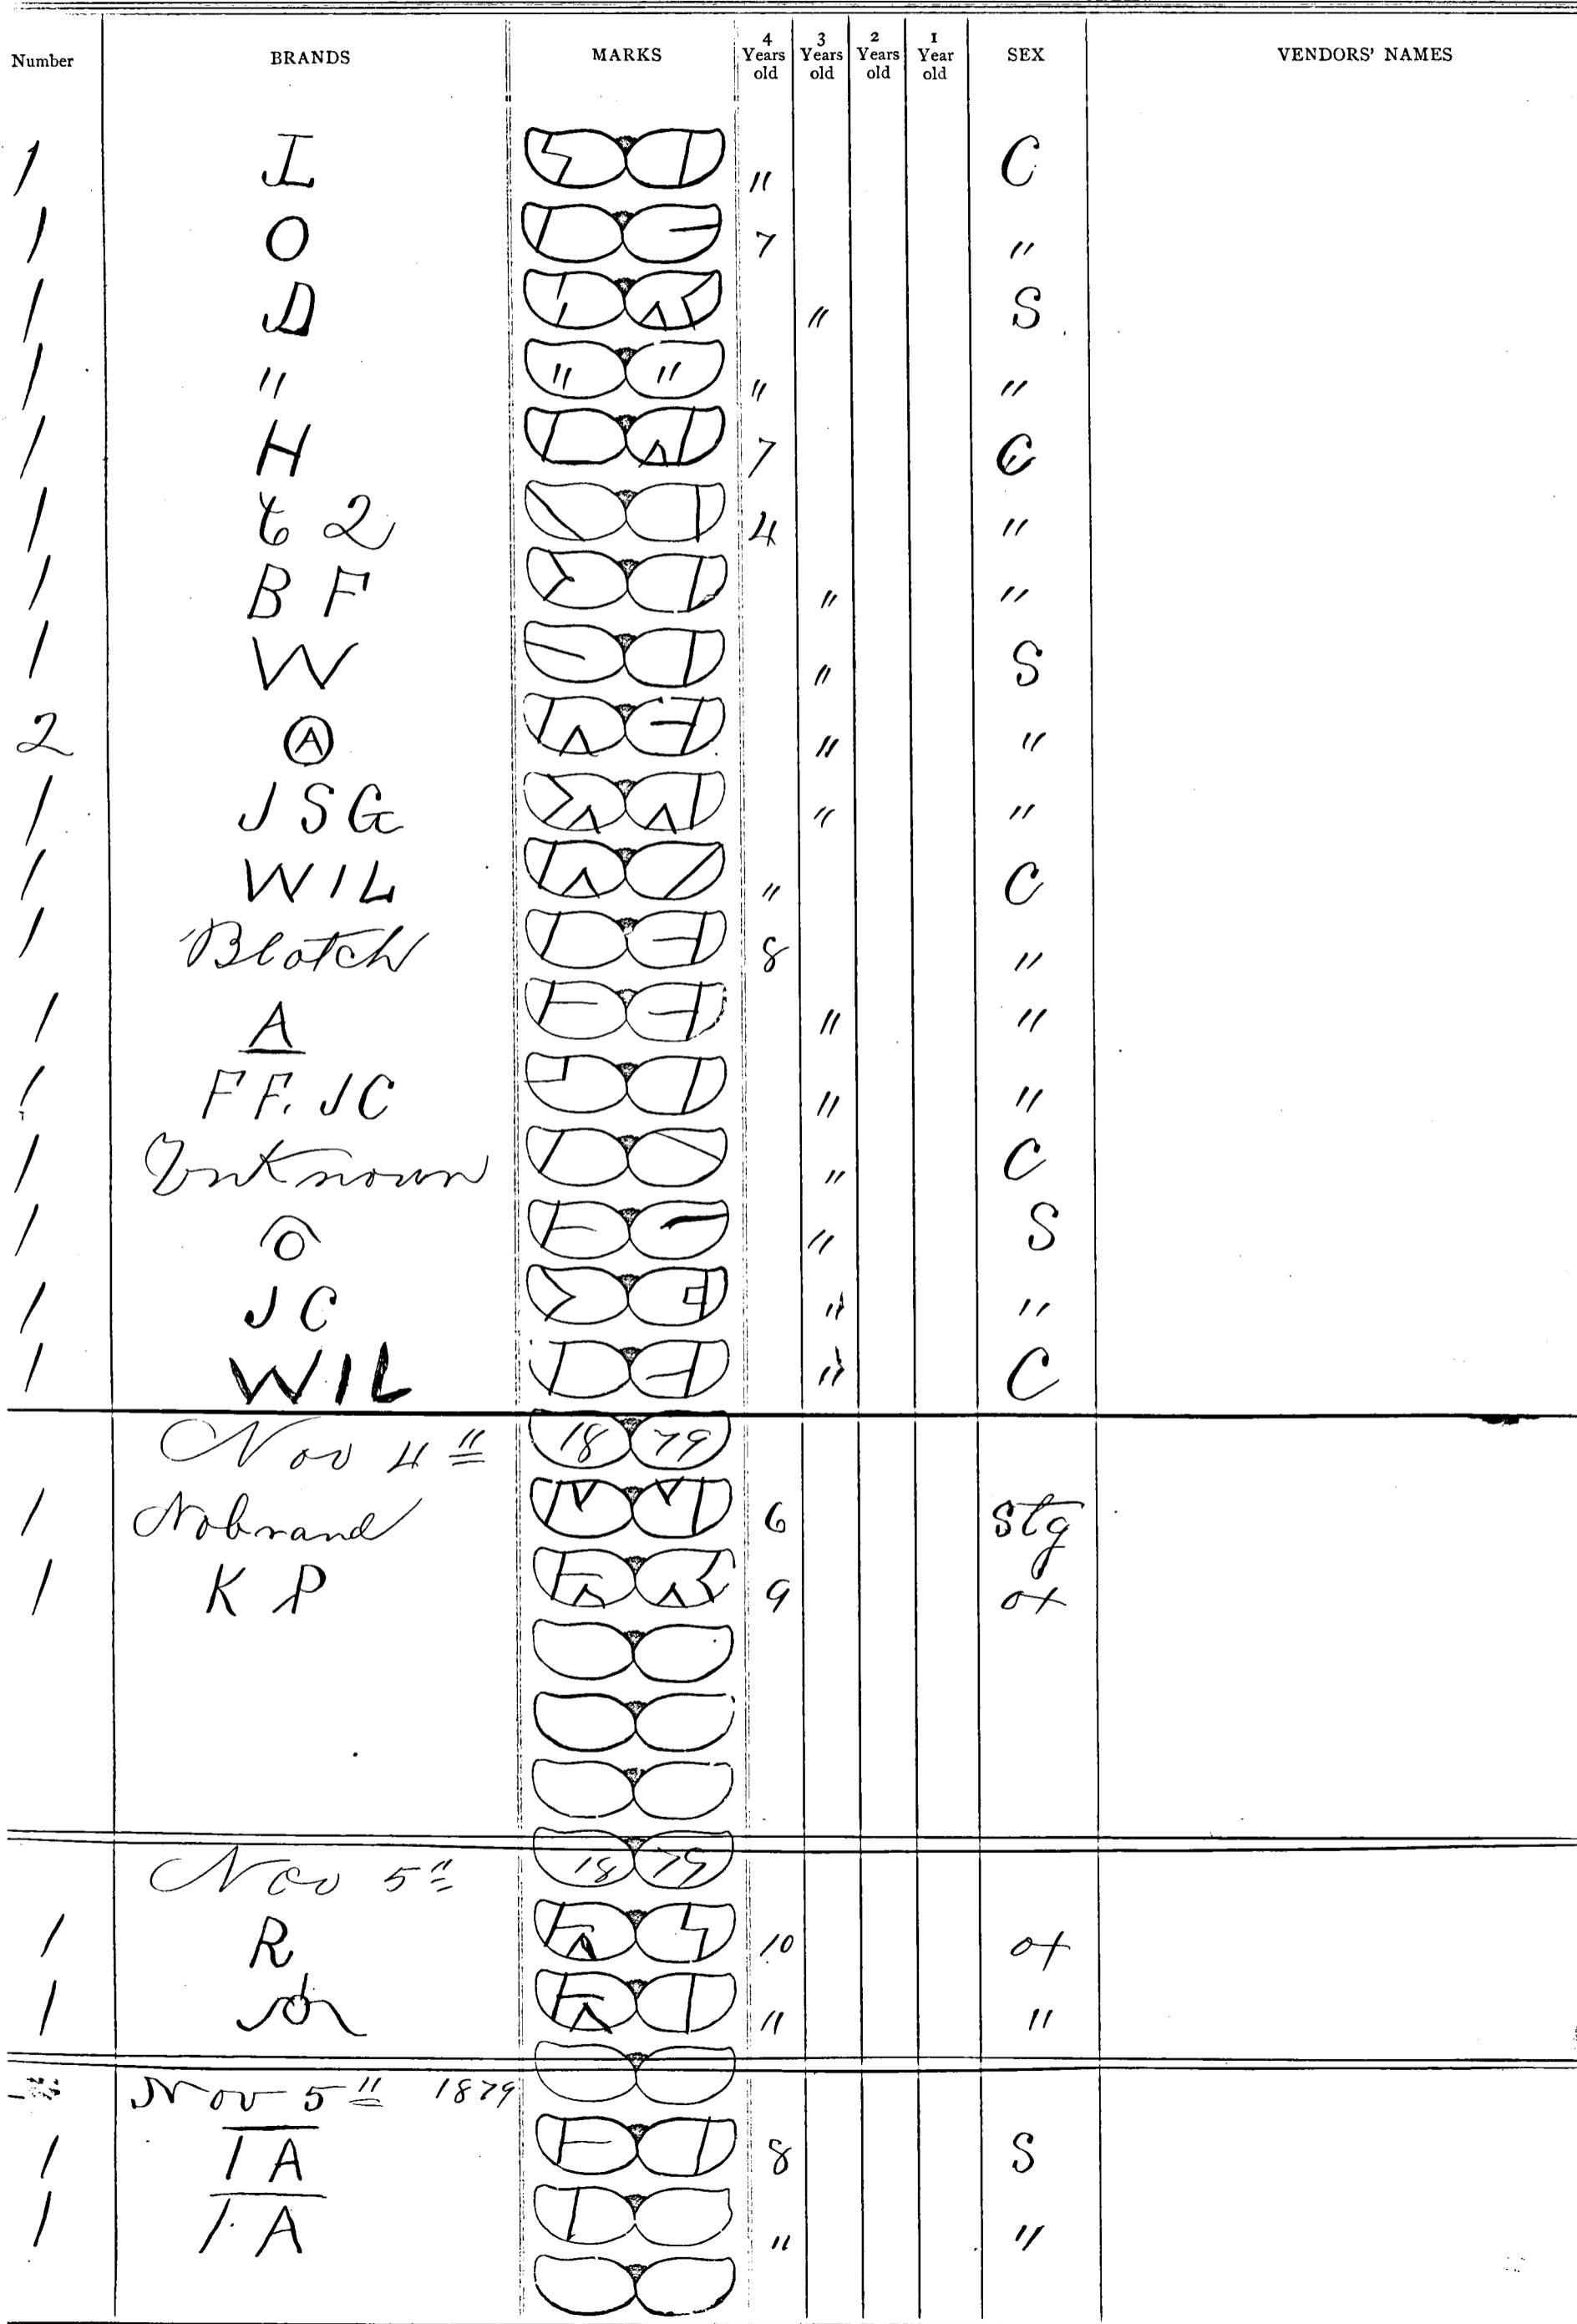 Number BRANDS MARKS 4 Years old 3 Years old 2 Years old 1 Year old SEX VENDORS' NAMES
1 I " C
1 O 7 "
1 D " S
1 " " " " "
1 H 7 C
1 2 4 "
1 B F " "
1 W " S
2 A " "
1 J S G " "
1 W I L " C
1 Blotch 8 "
1 A " "
1 F F. J C " "
1 Unknown " C
1 O " S
1 J C " "
1 W I L " C
Nov 4" 18 79
1 Nobrand 6 Stg
1 K P 9 ox
Nov 5" 18 79
1 R 10 ox
1 " "
Nov 5" 1879
1 1 A 8 S
1 1. A " "